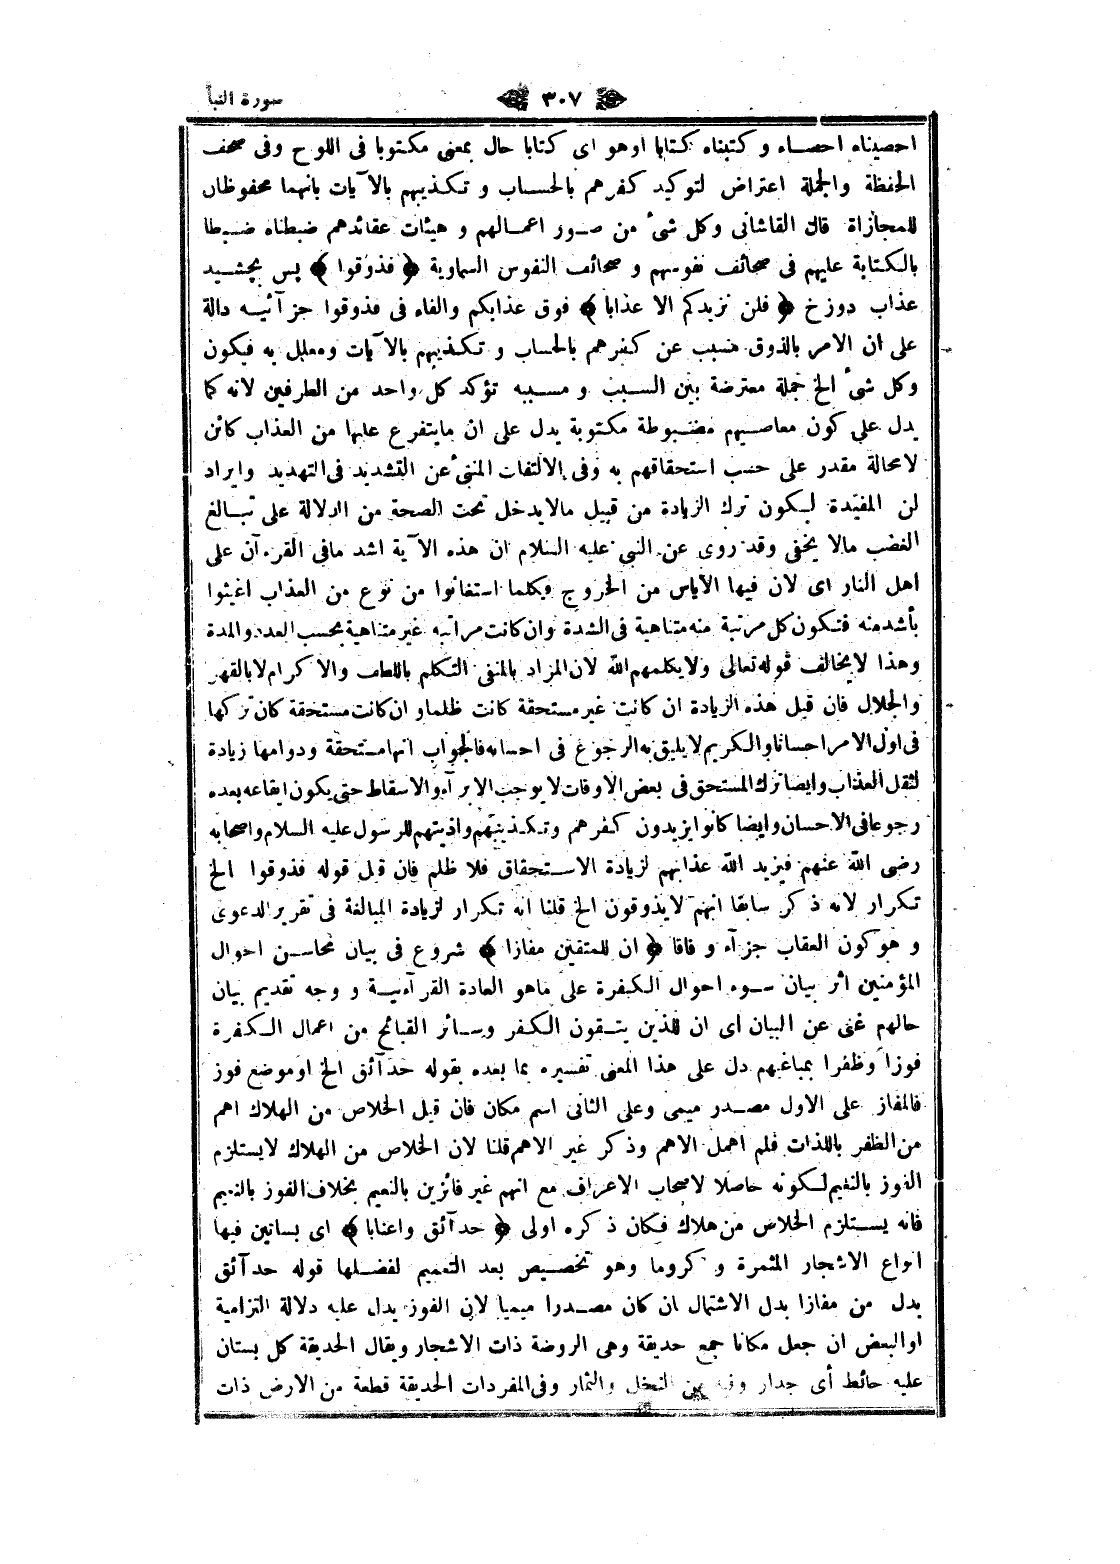 سورة النبأ
٣٠٧
احصيناه احصاء وكتبناه كتابا اوهو اى كتابا حال بمعنى مكتوبا فى اللوح وفى صحف
الحفظة والجملة اعتراض لتوكيد كفرهم بالحساب وتكذيبهم بالآيات بانهما محفوظان
للمجازاة قال القاشانى وكل شئ من صور اعمالهم وهيئات عقائدهم ضبطناه ضبطا
بالكتابة عليهم فى صحائف نفوسهم وصحائف النفوس السماوية ﴿ فذوقوا ﴾ پس بچشيد
عذاب دوزخ ﴿ فلن نزيدكم الا عذابا ﴾ فوق عذابكم والفاء فى فذوقوا جزآئيه دالة
على ان الامر بالذوق مسبب عن كفرهم بالحساب وتكذيبهم بالآيات ومعلل به فيكون
وكل شئ الخ جملة معترضة بين السبب ومسببه تؤكد كل واحد من الطرفين لانه كما
يدل على كون معاصيهم مضبوطة مكتوبة يدل على ان مايتفرع عليها من العذاب كائن
لامحالة مقدر على حسب استحقاقهم به وفى الالتفات المنبئ عن التشديد فى التهديد وايراد
لن المفيدة لكون ترك الزيادة من قبيل مالايدخل تحت الصحة من الدلالة على تبالغ
الغضب مالا يخفى وقد روى عن النبى عليه السلام ان هذه الآية اشد مافى القرءآن على
اهل النار اى لان فيها الاياس من الخروج فكلما استغاثوا من نوع من العذاب اغيثوا
بأشد منه فتكون كل مرتبة منه متناهية فى الشدة وان كانت مراتبه غير متناهية بحسب العدد والمدة
وهذا لا يخالف قوله تعالى ولايكلمهم الله لان المراد بالمنفى التكلم باللطف والاكرام لا بالقهر
والجلال فان قيل هذه الزيادة ان كانت غير مستحقة كانت ظلما وان كانت مستحقة كان تركها
فى اول الامر احسانا والكريم لا يليق به الرجوع فى احسانه فالجواب انها مستحقة ودوامها زيادة
لثقل العذاب وايضا ترك المستحق فى بعض الاوقات لا يوجب الابرآء والاسقاط حتى يكون ايقاعه بعده
رجوعا فى الاحسان وايضا كانوا يزيدون كفرهم وتكذيبهم واذيتهم للرسول عليه السلام واصحابه
رضى الله عنهم فيزيد الله عذابهم لزيادة الاستحقاق فلا ظلم فان قيل قوله فذوقوا الخ
تكرار لانه ذكر سابقا انهم لايذوقون الخ قلنا انه تكرار لزيادة المبالغة فى تقرير الدعوى
وهو كون العقاب جزآء وفاقا ﴿ ان للمتقين مفازا ﴾ شروع فى بيان محاسن احوال
المؤمنين اثر بيان سوء احوال الكفرة على ماهو العادة القرآءنية ووجه تقديم بيان
حالهم غنى عن البيان اى ان للذين يتقون الكفر وسائر القبائح من اعمال الكفرة
فوزا وظفرا بمباغيهم دل على هذا المعنى تفسيره بما بعده بقوله حدآئق الخ اوموضع فوز
فالمفاز على الاول مصدر ميمى وعلى الثانى اسم مكان فان قيل الخلاص من الهلاك اهم
من الظفر باللذات فلم اهمل الاهم وذكر غير الاهم قلنا لان الخلاص من الهلاك لايستلزم
الفوز بالنعيم لكونه حاصلا لاصحاب الاعراف مع انهم غير فائزين بالنعيم بخلاف الفوز بالنعيم
فانه يستلزم الخلاص من هلاك فكان ذكره اولى ﴿ حدآئق واعنابا ﴾ اى بساتين فيها
انواع الاشجار المثمرة وكروما وهو تخصيص بعد التعميم لفضلها قوله حدآئق
بدل من مفازا بدل الاشتمال ان كان مصدرا ميميا لان الفوز يدل عليه دلالة التزامية
اوالبعض ان جعل مكانا جمع حديقة وهى الروضة ذات الاشجار ويقال الحديقة كل بستان
عليه حائط أى جدار وفيه من النخل والثمار وفى المفردات الحديقة قطعة من الارض ذات